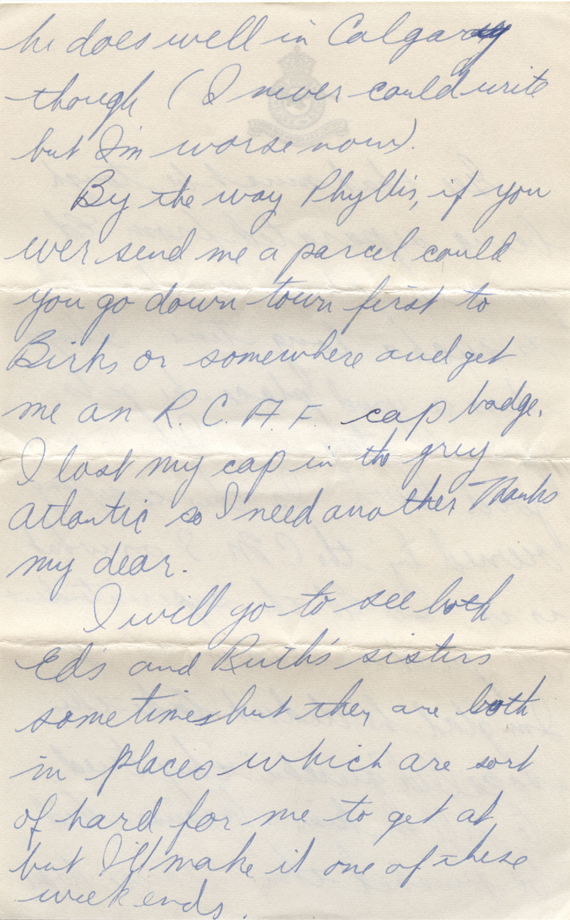 he does well in Calgary
though (I never could write
but I'm worse now).
By the way Phyllis, if you
wer send me a parcel could
you go down town first to
Birks or somewhere and get
me an R.C.A.F. cap badge.
I lost my cap in the grey
Atlantic so I need another Thanks
my dear.
I will go to see both
Ed's and Ruth's sisters
sometimes but they are both
in places which are sort
of hard for me to get at
but I'll make it one of these
week ends.